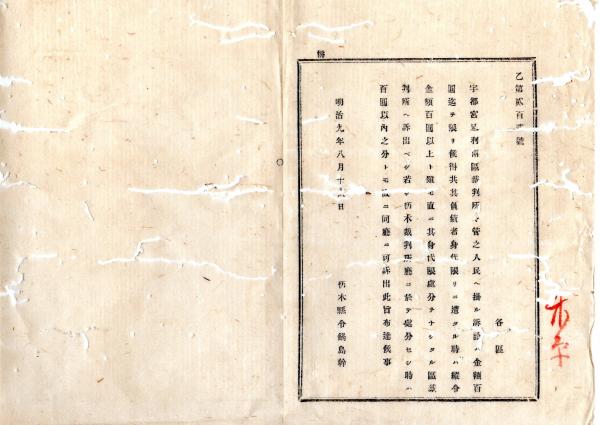 乙第貳百貳號
各區
宇都宮足利兩區裁判所ヘ管之人民ヘ掛ル訴訟ハ金額百
圓迄ヲ限リ候得共其負債者身代限リニ遭タル時ハ縱令
金額百圓以上ト雖モ直ニ其身代限處分ヲナシタル區裁
判所ヘ訴出ベシ若シ栃木裁判所廳ニ於テ處分セシ時ハ
百圓以內之分トモ ニ同廳ニ可訴出此旨布達候事
明治九年八月十 日
栃木縣令鍋島幹